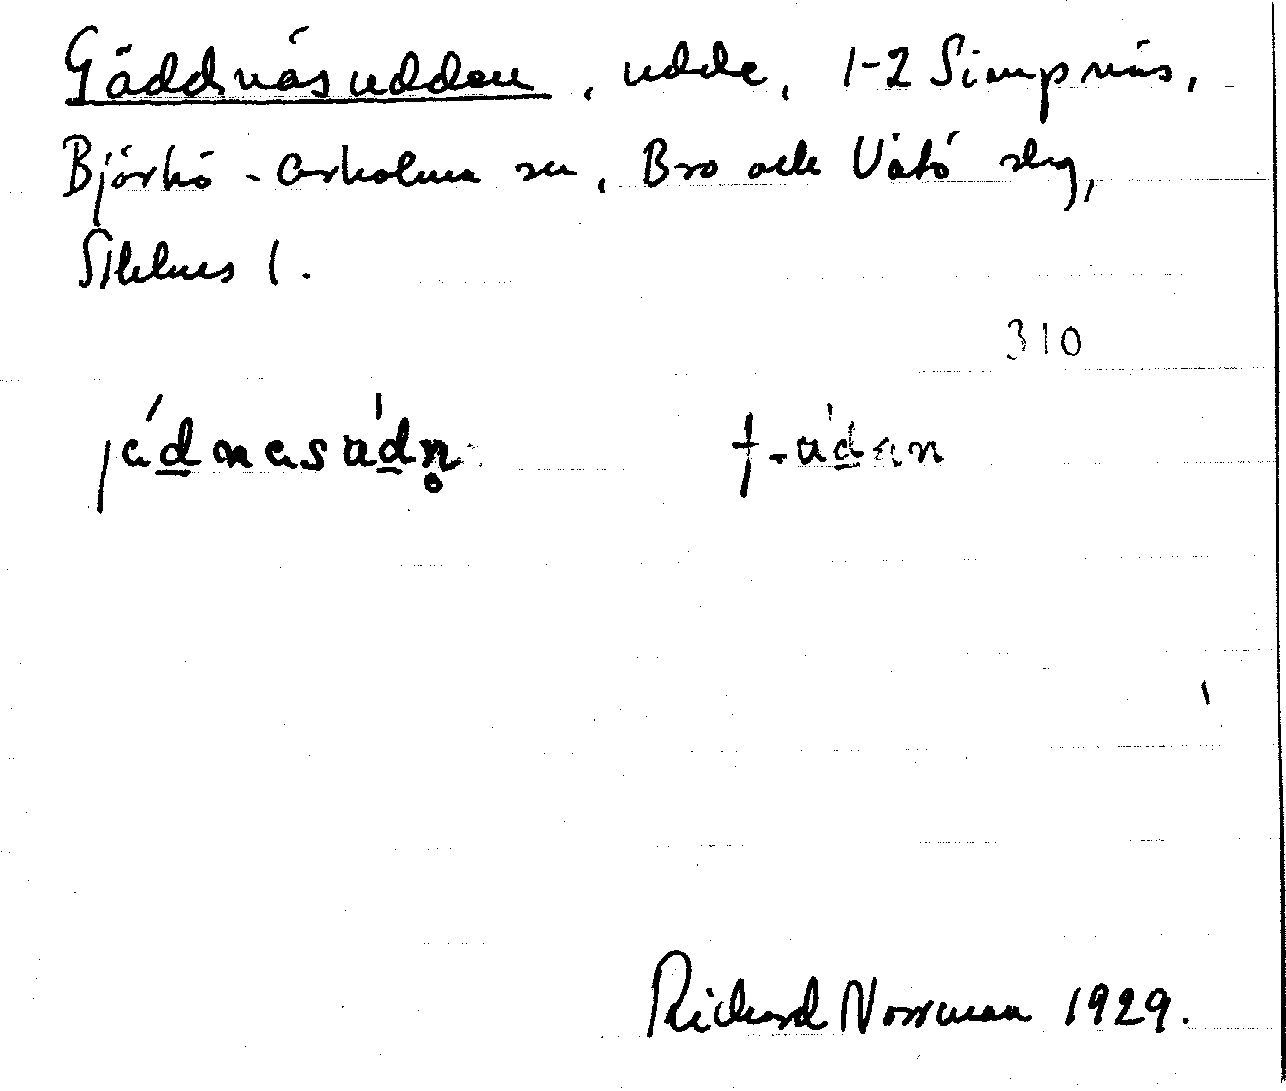 Gäddnäsudden, udde, 1-2 Simpnäs,
Björkö-Arholma sn, Bro och Vätö slg,
Sthlms l.
310
jɛ́dnɛsúdn̥ †-údan
Richard Norrman 1929.